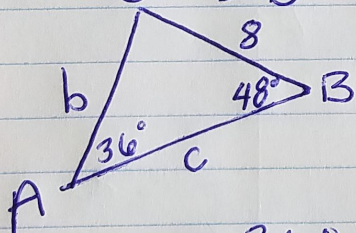 8
b
48°
B
36°
c
A